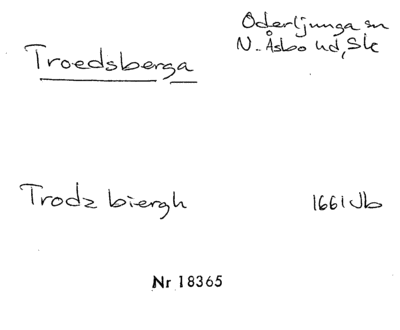 Oderljunga sn
N. Åsbo hd, Sk
Troedsberga
Trodz biergh 1661 Jb
Nr 18365